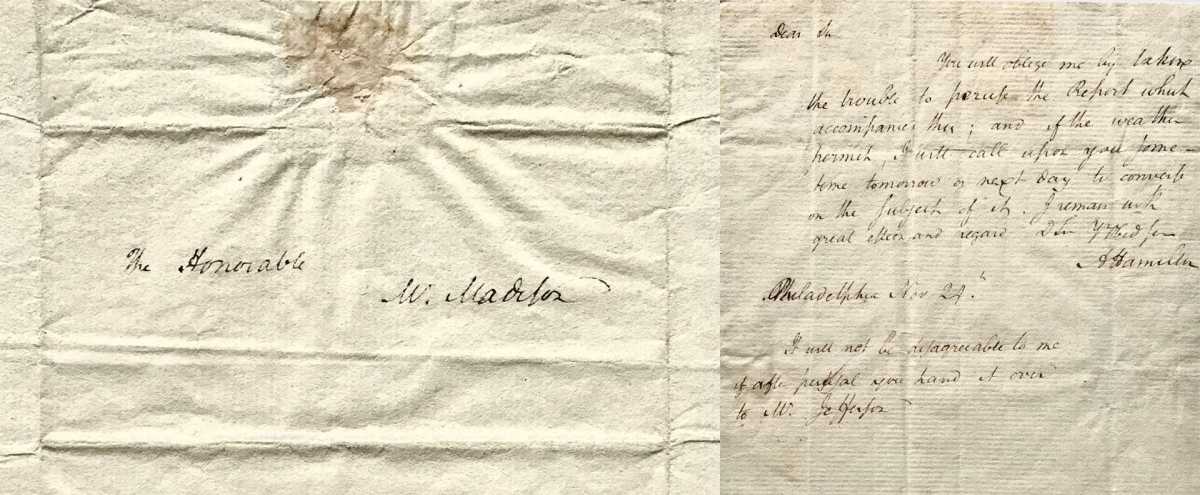 The Honorable
Mr. Madison
Dear Sir
You will oblige me by taking
the trouble to peruse the Report which
accompanies this; and if the weather
permit, I will call upon you some-
time tomorrow or next day to converse
on the subject of it. I remain with
great esteem and regard D Sir Yr Obed ser
A Hamilton
Philadelphia Nov 24.
It will not be disagreeable to me
if after perusal you hand it over
to Mr. Jefferson